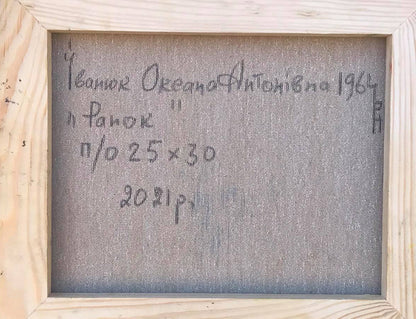 Іванюк Океана Антонівна 1964 р н
„Ранок"
п/о 25×30
2021р.